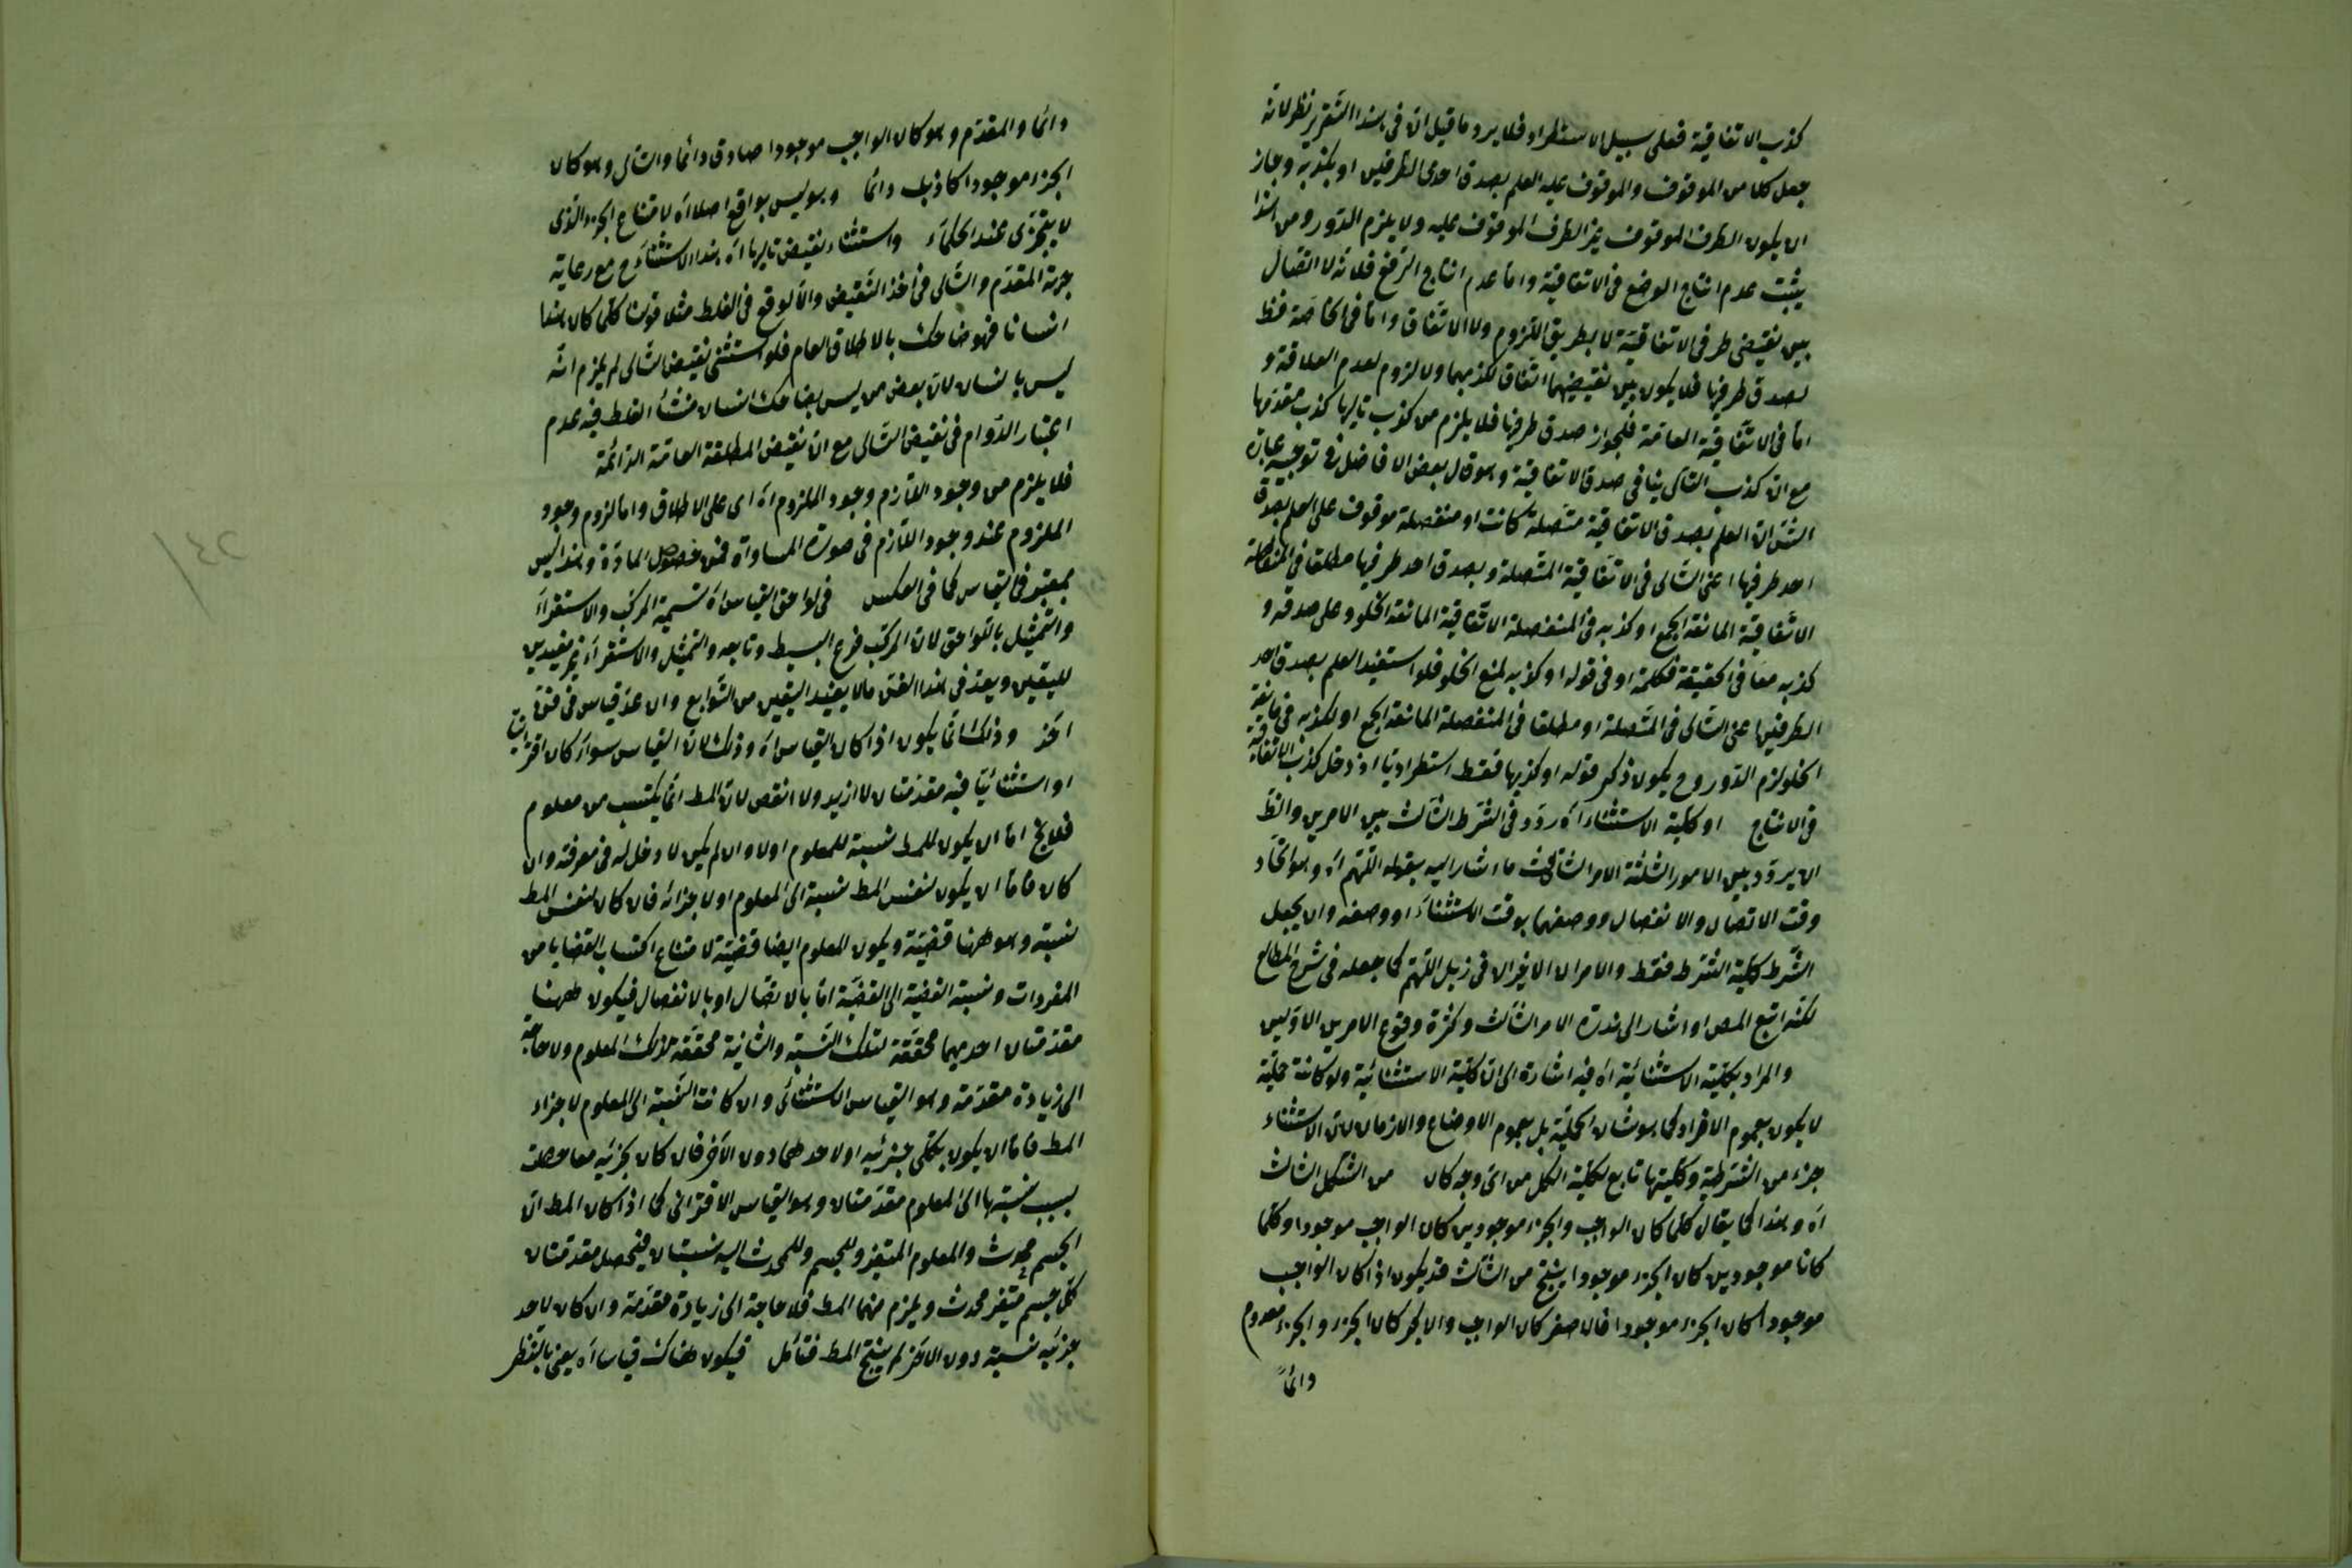 كذب الاتفاقية فعلى سبيل الاستطراد فلا يرد ما قيل ان فى هذا التقرير نظر لانه
جعل كلا من الموقوف والموقوف عليه العلم بصدق احدى الطرفين او بكذبه وجاز
ان يكون الطرف الموقوف غير الطرف الموقوف عليه ولا يلزم الدور ومن هذا
يثبت عدم انتاج الوضع فى الاتفاقية واما عدم انتاج الرفع فلانه لا اتصال
بين نقيضى طرفى الاتفاقية لا بطريق اللزوم ولا الاتفاق واما فى الخاصة فظ
لصدق طرفيها فلا يكون بين نقيضيهما اتفاق لكذبهما ولا لزوم لعدم العلاقة و
اما فى الاتفاقية العامة فلجواز صدق طرفيها فلا يلزم من كذب تاليها كذب مقدمها
مع ان كذب التالى ينافى صدق الاتفاقية وهو قال بعض الافاضل فى توجيه عبارة
الش ان العلم بصدق الاتفاقية متصلة كانت او منفصلة موقوف على العلم بصدق
احد طرفيها اعنى التالى فى الاتفاقية المتصلة وبصدق احد طرفيها مطلقا فى المنفصلة
الاتفاقية المانعة الجمع او كذبه فى المنفصلة الاتفاقية المانعة الخلو وعلى صدقه و
كذبه معا فى الحقيقة فكلمة او فى قوله او كذبه لمنع الخلو فلو استفيد العلم بصدق احد
الطرفين اعنى التالى فى المتصلة او مطلقا فى المنفصلة المانعة الجمع او بكذبه فى مانعة
الخلو لزم الدور وح يكون ذكر قوله او كذبها فقط استطراديا اذ دخل كذب الاتفاقية
فى الانتاج او كلية الاستثناء اه ردد فى الشرط الثالث بين الامرين والظ
ان يردد بين الامور الثلثة الامر الثالث ما اشار اليه بقوله اللهم اه وهو اتحاد
وقت الاتصال والانفصال ووصفهما بوقت الاستثناء او وصفه وان يجعل
الشرط كلية الشرط فقط والامران الاخيران فى ذيل اللهم كما جعله فى شرح المطالع
لكنه اتبع المص او اشار الى ندرة الامر الثالث وكثرة وقوع الامرين الاولين
والمراد بكلية الاستثنائية اه فيه اشارة الى ان كلية الاستثنائية ولو كانت حملية
لا يكون بعموم الافراد كما هو شان الحملية بل بعموم الاوضاع والازمان لان الاستثناء
جزء من الشرطية وكليتها تابع لكلية الكل من اى وجه كان من الشكل الثالث
اه وهذا كما يقال كلما كان الواجب والجزء موجودين كان الواجب موجودا وكلما
كانا موجودين كان الجزء موجودا ينتج من الثالث قد يكون اذا كان الواجب
موجودا كان الجزء موجودا فالاصغر كان الواجب والاكبر كان الجزء والجزء معدوم
دائما
دائما والمقدم وهو كان الواجب موجودا صادق دائما والتالى وهو كان
الجزء موجودا كاذب دائما وهو ليس بواقع اصلا اه لامتناع الجزء الذى
لا يتجزى عند الحكماء واستثناء نقيض تاليها اه هذا الاستثناء ح مع رعاية
جهة المقدم والتالى فى اخذ النقيض والا لوقع فى الغلط مثلا قولنا كلما كان هذا
انسانا فهو ضاحك بالاطلاق العام فلو استثنى نقيض التالى لم يلزم انه
ليس بانسان لان بعض من ليس بضاحك انسان منشأ الغلط فيه عدم
اعتبار الدوام فى نقيض التالى مع ان نقيض المطلقة العامة الدائمة
فلا يلزم من وجود اللازم وجود الملزوم اه اى على الاطلاق واما لزوم وجود
الملزوم عند وجود اللازم فى صورة المساواة فمن خصوص المادة وهذا ليس
بمعتبر فى القياس كما فى العكس فى لواحق القياس اه تسمية المركب والاستقراء
والتمثيل باللواحق لان المركب فرع البسيط وتابعه والتمثيل والاستقراء غير مفيدين
لليقين ويعد فى هذا الفن مالا يفيد اليقين من التوابع وان عد قياس فى فن
اخر وذلك انما يكون اذا كان القياس اه وذلك لان القياس سواء كان اقترانيا
او استثنائيا فيه مقدمتان لا ازيد ولا انقص لان المط انما يكتسب من معلوم
فلا يخ اما ان يكون للمط نسبة للمعلوم اولا وان لم يكن لا دخل له فى معرفته وان
كان فاما ان يكون لنفس المط نسبة الى المعلوم او لاجزائه فان كان لنفس المط
نسبة وهو ههنا قضية ويكون المعلوم ايضا قضية لامتناع اكتساب القضايا من
المفردات ونسبة القضية الى القضية اما بالاتصال او بالانفصال فيكون ههنا
مقدمتان احديهما محققة لتلك النسبة والثانية محققة لذلك المعلوم ولا حاجة
الى زيادة مقدمة وهو القياس الاستثنائى وان كانت النسبة الى المعلوم لاجزاء
المط فاما ان يكون بكلى جزئيه او لاحدهما دون الآخر فان كان بجزئيه معا حصلت
بسبب نسبتها الى المعلوم مقدمتان وهو القياس الاقترانى كما اذا كان المط ان
الجسم محدث والمعلوم المتغير وللجسم وللمحدث اليه نسبتان فيحصل مقدمتان
كل جسم متغير محدث ويلزم منهما المط فلا حاجة الى زيادة مقدمة وان كان لاحد
جزئيه نسبة دون الاخر لم ينتج المط فتأمل فيكون هناك قياسا اه يعنى بالنظر